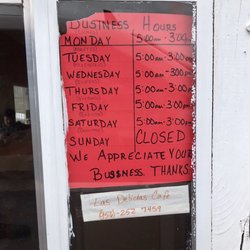 BUSINESS HOURS
MONDAY 5:00am-3:00
TUESDAY 5:00am-3:00pm
WEDNESDAY 5:00am-3:00pm
THURSDAY 5:00am-3:00pm
FRIDAY 5:00am-3:00pm
SATURDAY 5:00am-3:00pm
SUNDAY CLOSED
WE APPRECIATE YOUR
BUSINESS THANKS
Las Delicias Cafe
252 7459